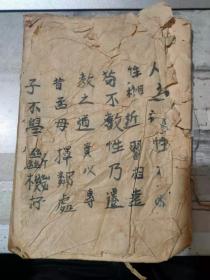 人之性
性相近習相遠
苟不教性乃遷
教之道貴以專
昔孟母擇鄰處
子不學斷機杼